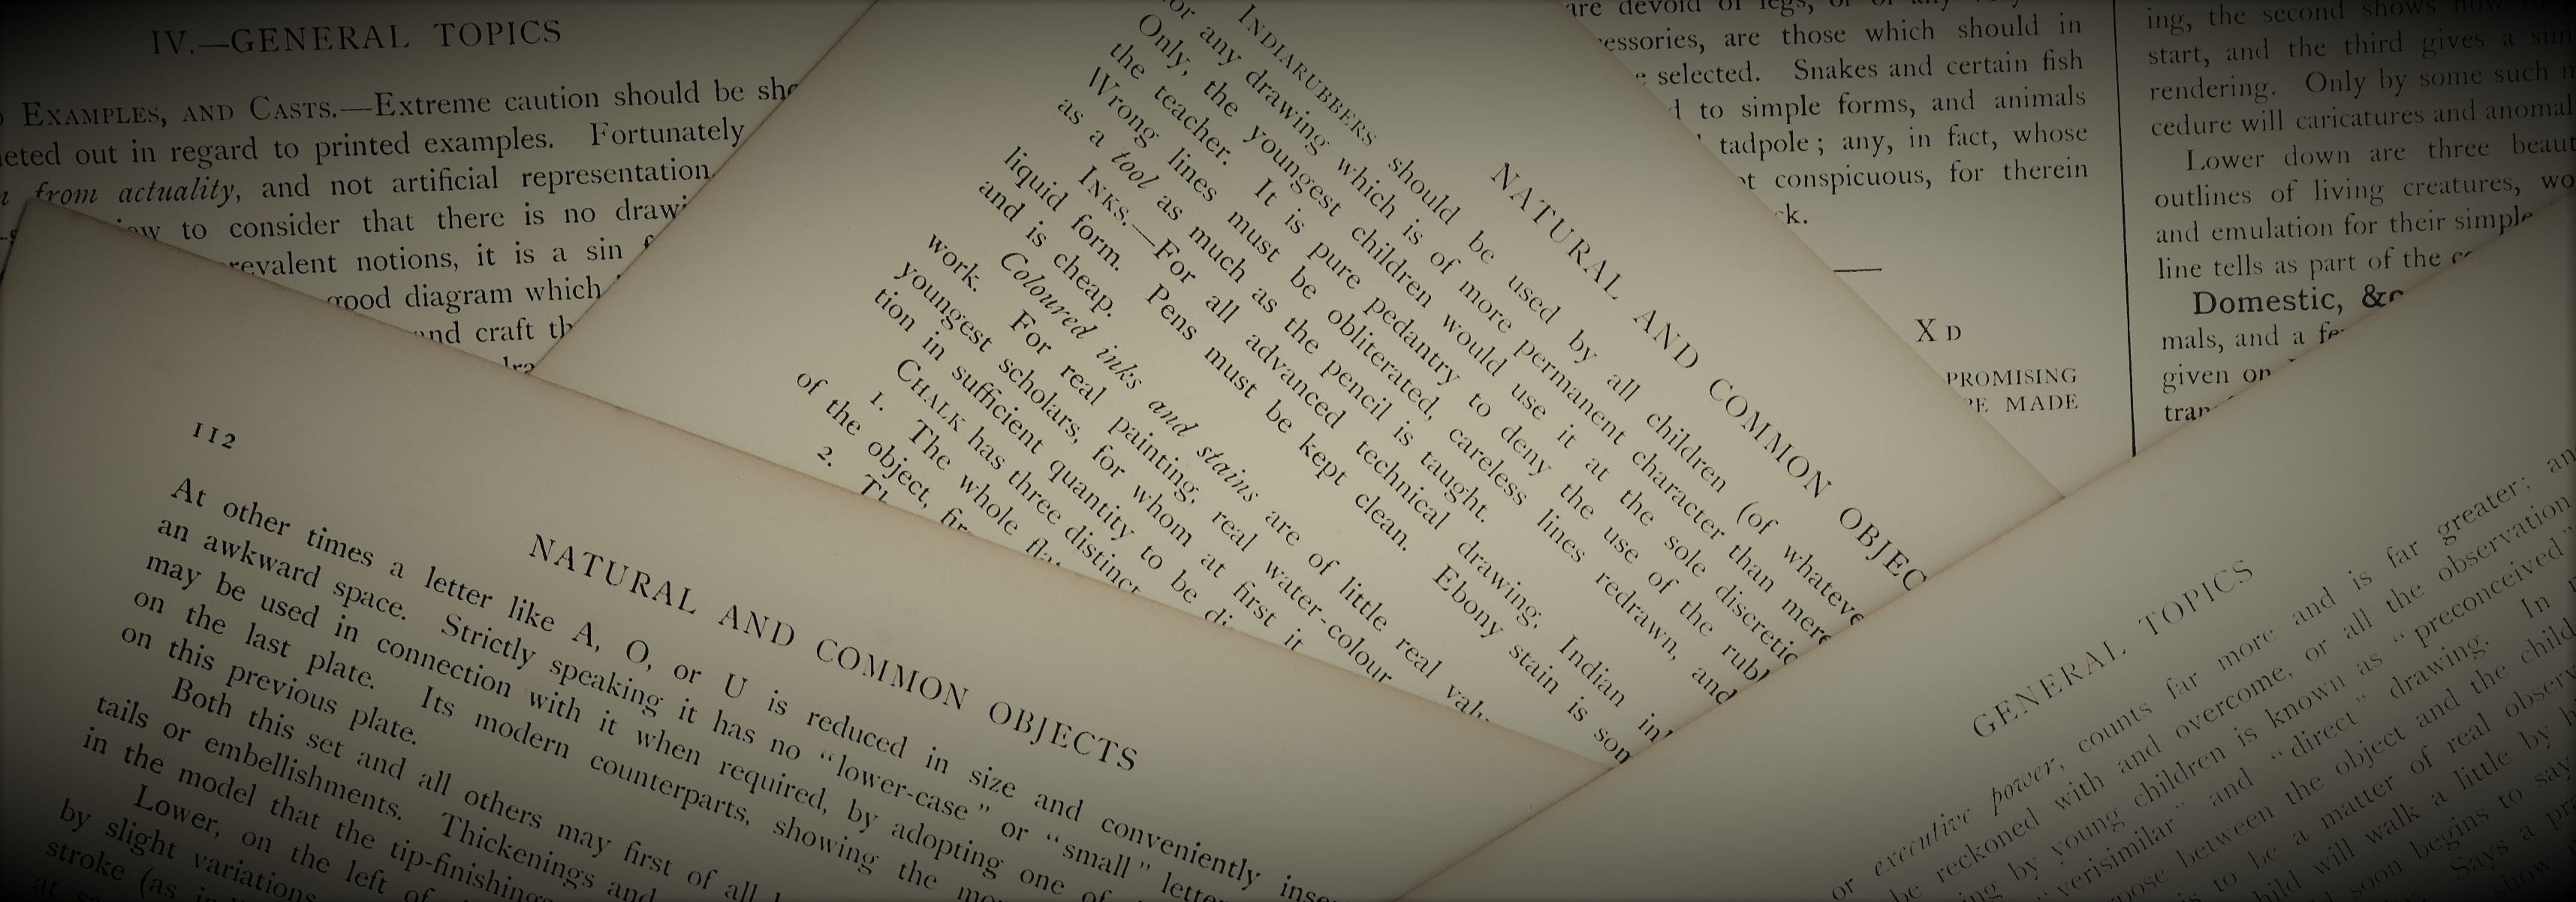 IV.—GENERAL TOPICS
EXAMPLES, AND CASTS.—Extreme caution should be
out in regard to printed examples. Fortunately
from actuality, and not artificial representation
to consider that there is no
notions, it is a sin
good diagram which
and craft
NATURAL AND COMMON
INDIARUBBERS should be used by all children (of
or any drawing which is of more permanent character than
Only, the youngest children would use it at the sole
the teacher. It is pure pedantry to deny the use of the
Wrong lines must be obliterated, careless lines redrawn, and
as a tool as much as the pencil is taught.
INKS.—For all advanced technical drawing, Indian
liquid form. Pens must be kept clean. Ebony stain is
and is cheap.
Coloured inks and stains are of little real
work. For real painting, real water-colour
youngest scholars, for whom at first it
tion in sufficient quantity to be
CHALK has three distinct
1. The whole
of the object,
2.
are devoid of legs, or
are those which should in
selected. Snakes and certain fish
to simple forms, and animals
tadpole; any, in fact, whose
conspicuous, for therein
X D
PROMISING
MADE
ing, the second shows
start, and the third gives a
rendering. Only by some such
cedure will caricatures and
Lower down are three
outlines of living creatures,
and emulation for their
line tells as part of the
Domestic,
mals, and a
given on
112
NATURAL AND COMMON OBJECTS
At other times a letter like A, O, or U is reduced in size and conveniently
an awkward space. Strictly speaking it has no “lower-case” or “small”
may be used in connection with it when required, by adopting one of
on the last plate. Its modern counterparts, showing the
on this previous plate.
Both this set and all others may first of all
tails or embellishments. Thickenings and
in the model that the
Lower, on the left of
by slight variations
stroke (as
GENERAL TOPICS
or executive power, counts far more and is far greater;
be reckoned with and overcome, or all the observation
by young children is known as “preconceived”
verisimilar” and “direct” drawing. In
between the object and the child
to be a matter of real
child will walk a little by
soon begins to say
Says a
show